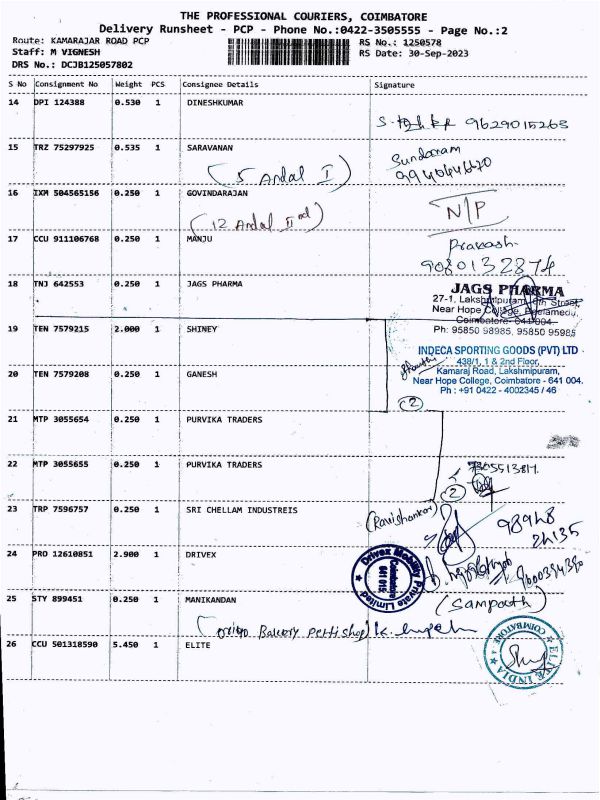 THE PROFESSIONAL COURIERS, COIMBATORE
Delivery Runsheet - PCP - Phone No.:0422-3505555 - Page No.:2
Route: KAMARAJAR ROAD PCP
RS No.: 1250578
Staff: M VIGNESH
RS Date: 30-Sep-2023
DRS No.: DCJB125057802
S No Consignment No Weight PCS Consignee Details Signature
14 DPI 124388 0.530 1 DINESHKUMAR
9629015263
15 TRZ 75297925 0.535 1 SARAVANAN
Sundaram
(5 Andal I)
16 IXM 504565156 0.250 1 GOVINDARAJAN
(12 Andal IInd)
N/P
17 CCU 911106768 0.250 1 MANJU
Prakash
9080132874
18 TNJ 642553 0.250 1 JAGS PHARMA
JAGS PHARMA
27-1, Lakshmipuram, Street,
Near Hope College, Peelamedu,
Coimbatore- 641 004.
Ph: 95850 98985, 95850 95985
19 TEN 7579215 2.000 1 SHINEY
INDECA SPORTING GOODS (PVT) LTD
438/1, 1 & 2nd Floor,
Kamaraj Road, Lakshmipuram,
Near Hope College, Coimbatore - 641 004.
Ph : +91 0422 - 4002345 / 46
20 TEN 7579208 0.250 1 GANESH
2
21 MTP 3055654 0.250 1 PURVIKA TRADERS
22 MTP 3055655 0.250 1 PURVIKA TRADERS
2
23 TRP 7596757 0.250 1 SRI CHELLAM INDUSTREIS
(Ravishankar)
98948
24135
24 PRO 12610851 2.900 1 DRIVEX
Drivex Mobility Private Limited
Coimbatore
641 015
25 STY 899451 0.250 1 MANIKANDAN
(Sampath)
(origo Bakery Petti shop)
26 CCU 501318590 5.450 1 ELITE
ELITE INDIA
COIMBATORE